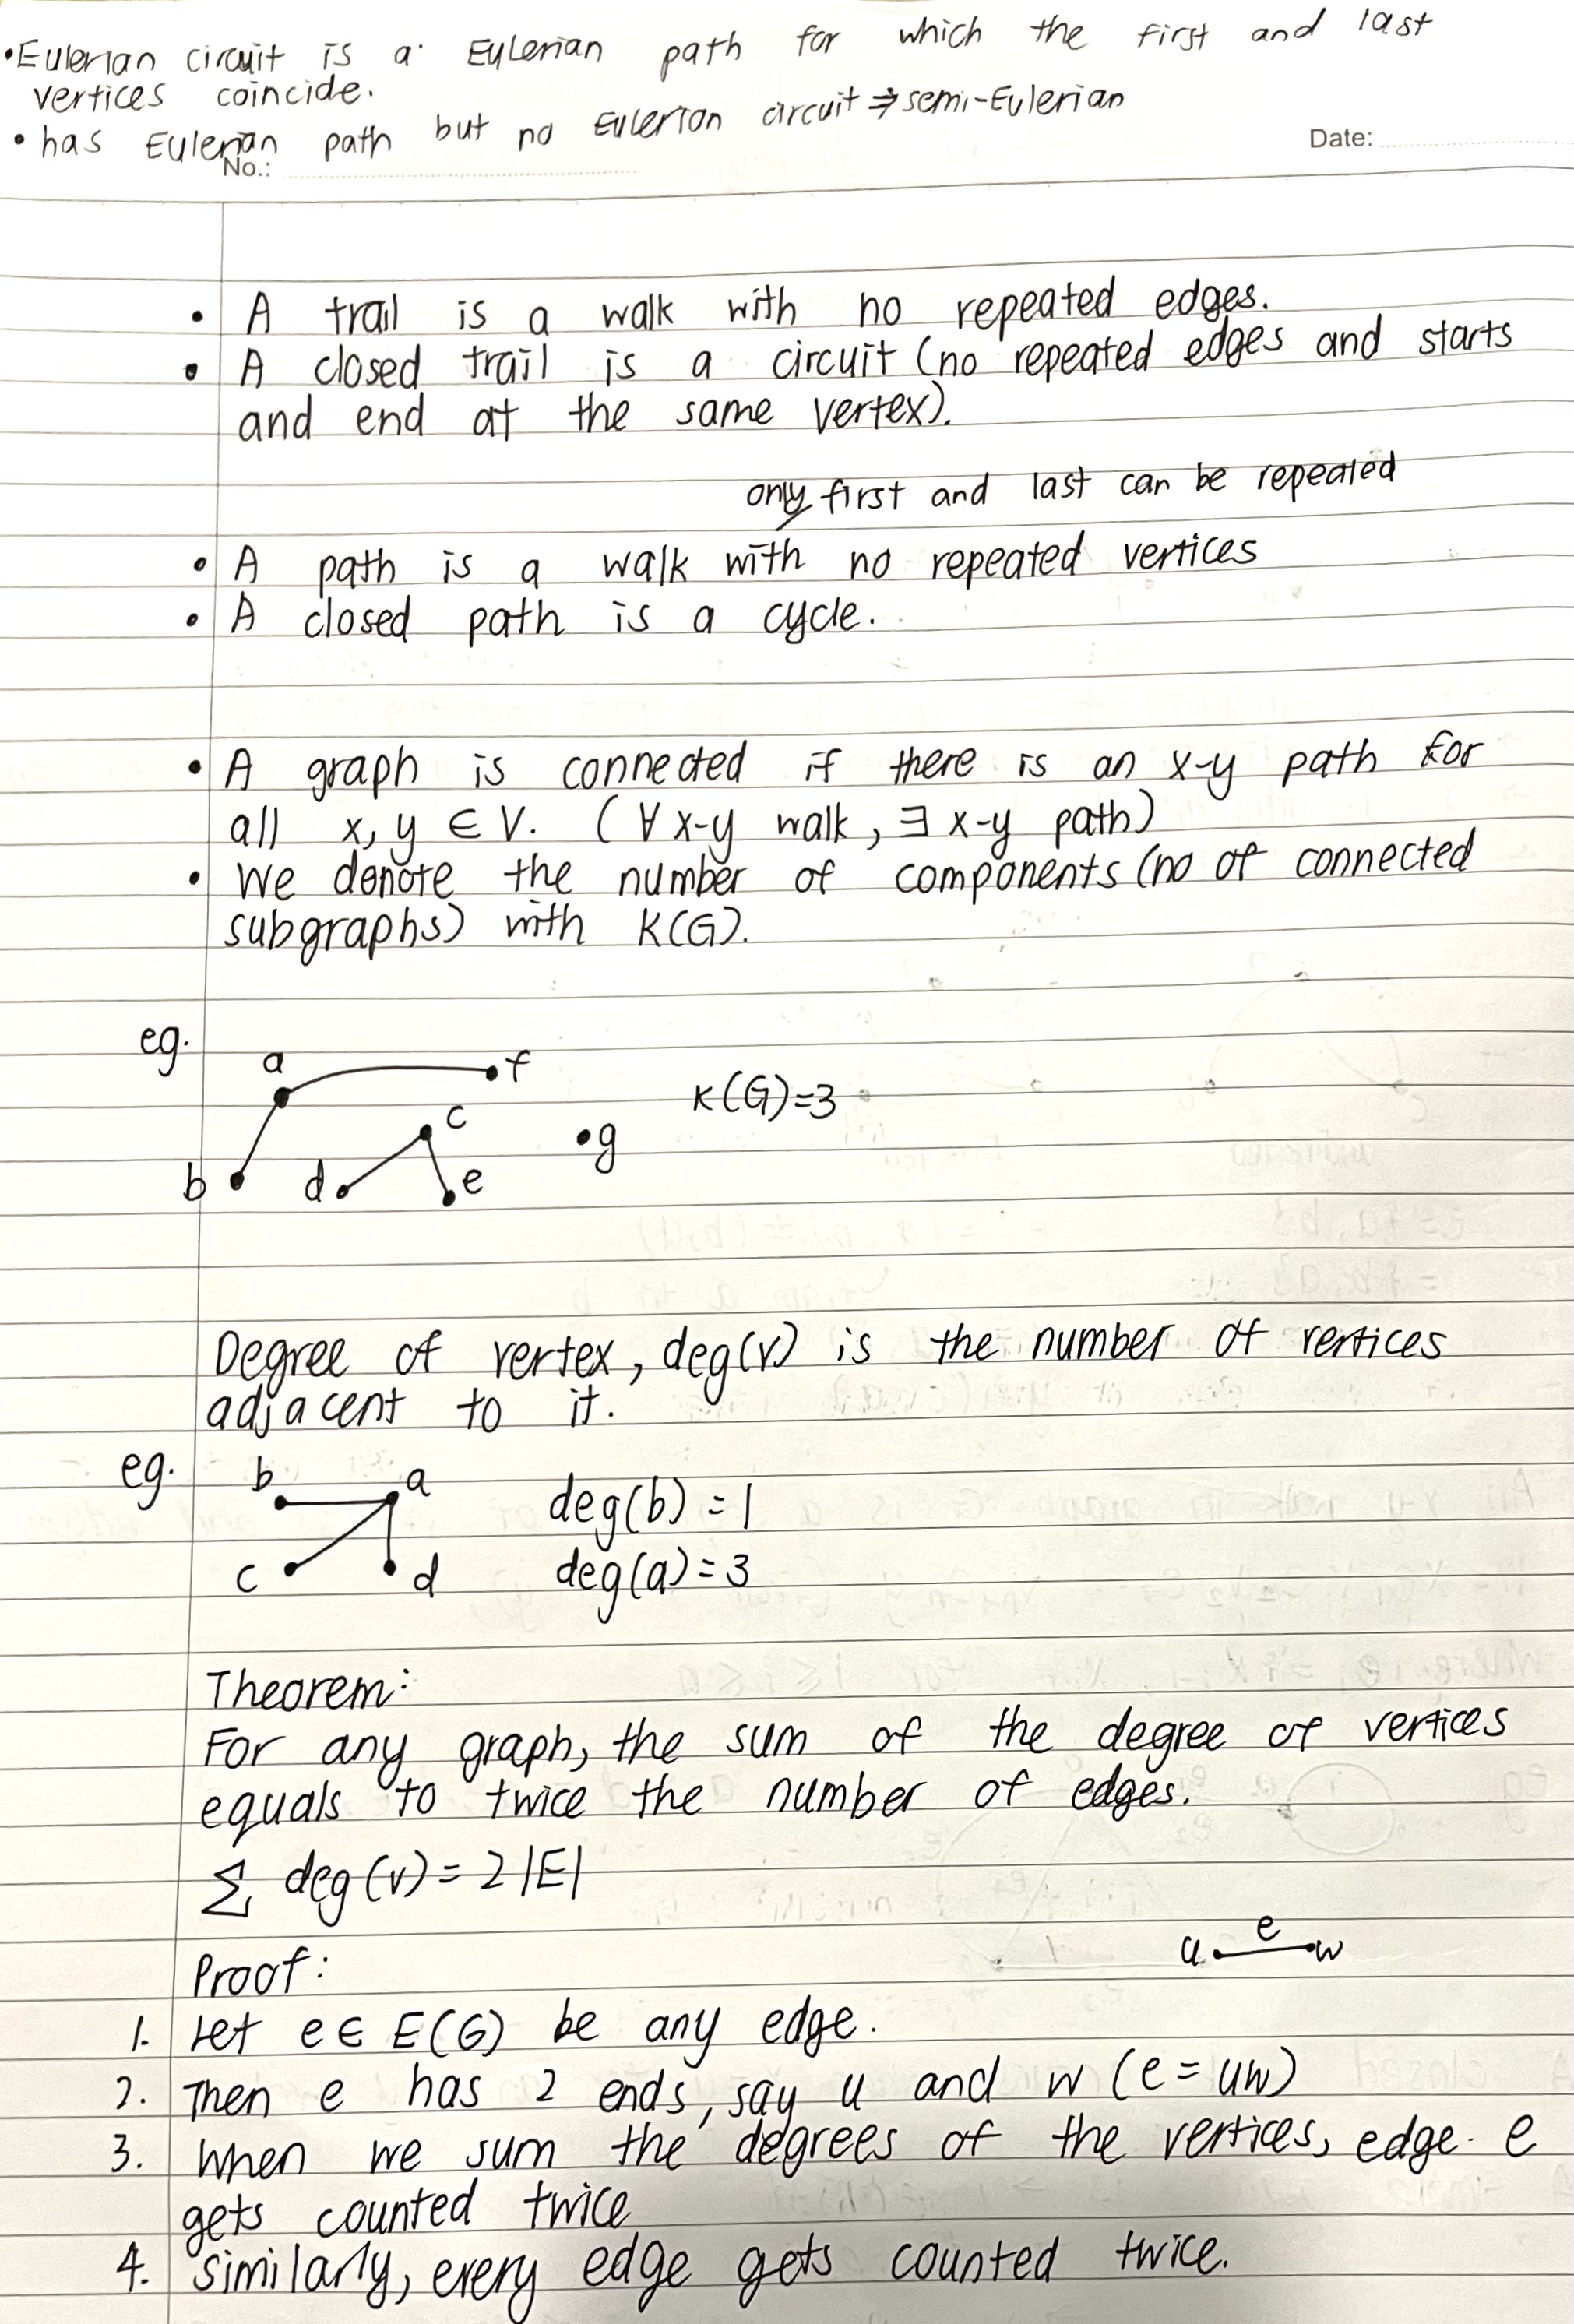 •Eulerian circuit is a Eulerian path for which the first and last
vertices coincide.
• has Eulerian path but no Eulerian circuit ⇒ semi-Eulerian
No.:
Date:
• A trail is a walk with no repeated edges.
• A closed trail is a circuit (no repeated edges and starts
and end at the same vertex).
only first and last can be repeated
• A path is a walk with no repeated vertices
• A closed path is a cycle.
• A graph is connected if there is an x-y path for
all x, y ∈ V. (∀ x-y walk, ∃ x-y path)
• We denote the number of components (no of connected
subgraphs) with K(G).
eg.
a f
c
K(G)=3
g
b d e
Degree of vertex, deg(v) is the number of vertices
adjacent to it.
eg. b a
deg(b) = 1
c d
deg(a) = 3
Theorem:
For any graph, the sum of the degree of vertices
equals to twice the number of edges.
Σ deg(v) = 2|E|
u e w
Proof:
1. Let e ∈ E(G) be any edge.
2. Then e has 2 ends, say u and w (e = uw)
3. When we sum the degrees of the vertices, edge e
gets counted twice
4. similarly, every edge gets counted twice.